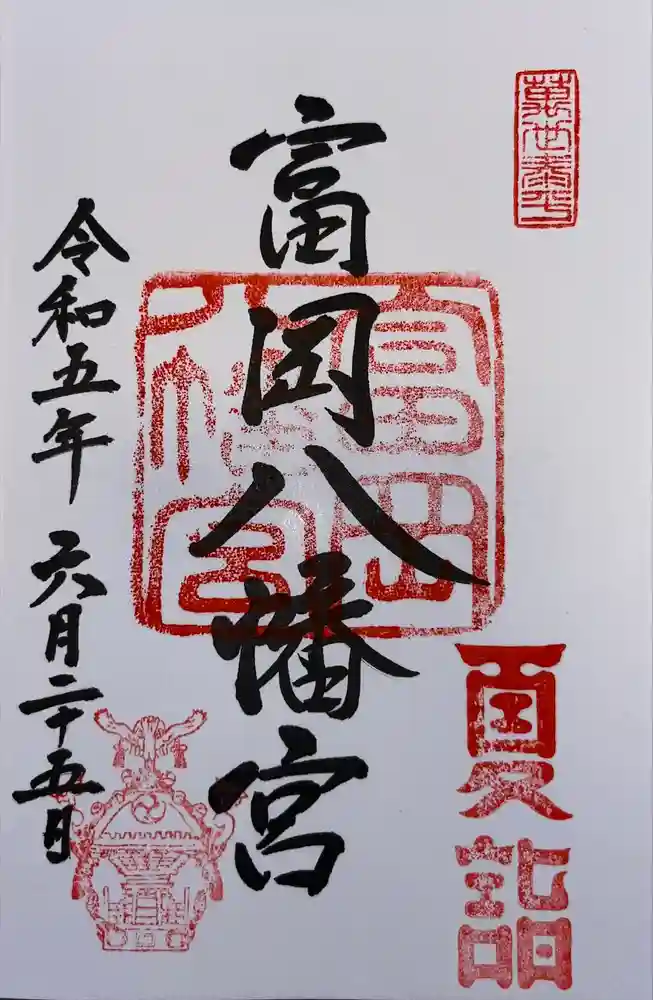 萬世泰平
夏詣
富岡八幡宮
富岡八幡宮
令和五年六月二十五日